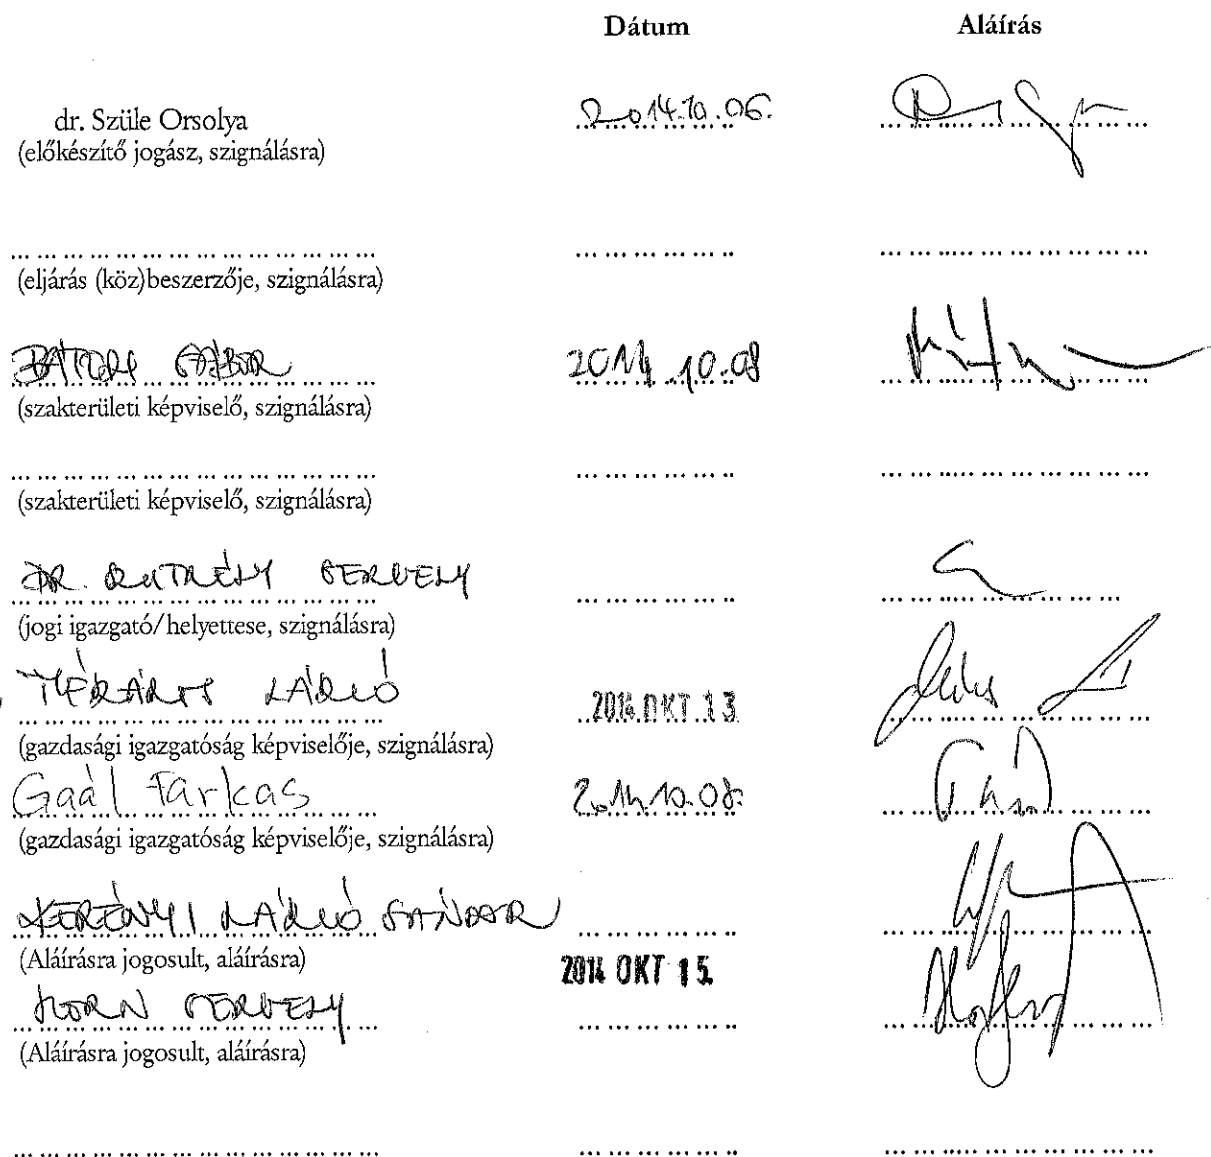 Dátum Aláírás
dr. Szüle Orsolya 2014.10.06.
(előkészítő jogász, szignálásra)
(eljárás (köz)beszerzője, szignálásra)
BÁTORI GÁBOR 2014.10.08
(szakterületi képviselő, szignálásra)
(szakterületi képviselő, szignálásra)
DR. GERGELY
(jogi igazgató/helyettese, szignálásra)
LÁSZLÓ 2014 OKT 13.
(gazdasági igazgatóság képviselője, szignálásra)
Gaál Farkas 2014.10.08.
(gazdasági igazgatóság képviselője, szignálásra)
KERÉNYI LÁSZLÓ SÁNDOR
(Aláírásra jogosult, aláírásra) 2014 OKT 15.
HORN GERGELY
(Aláírásra jogosult, aláírásra)